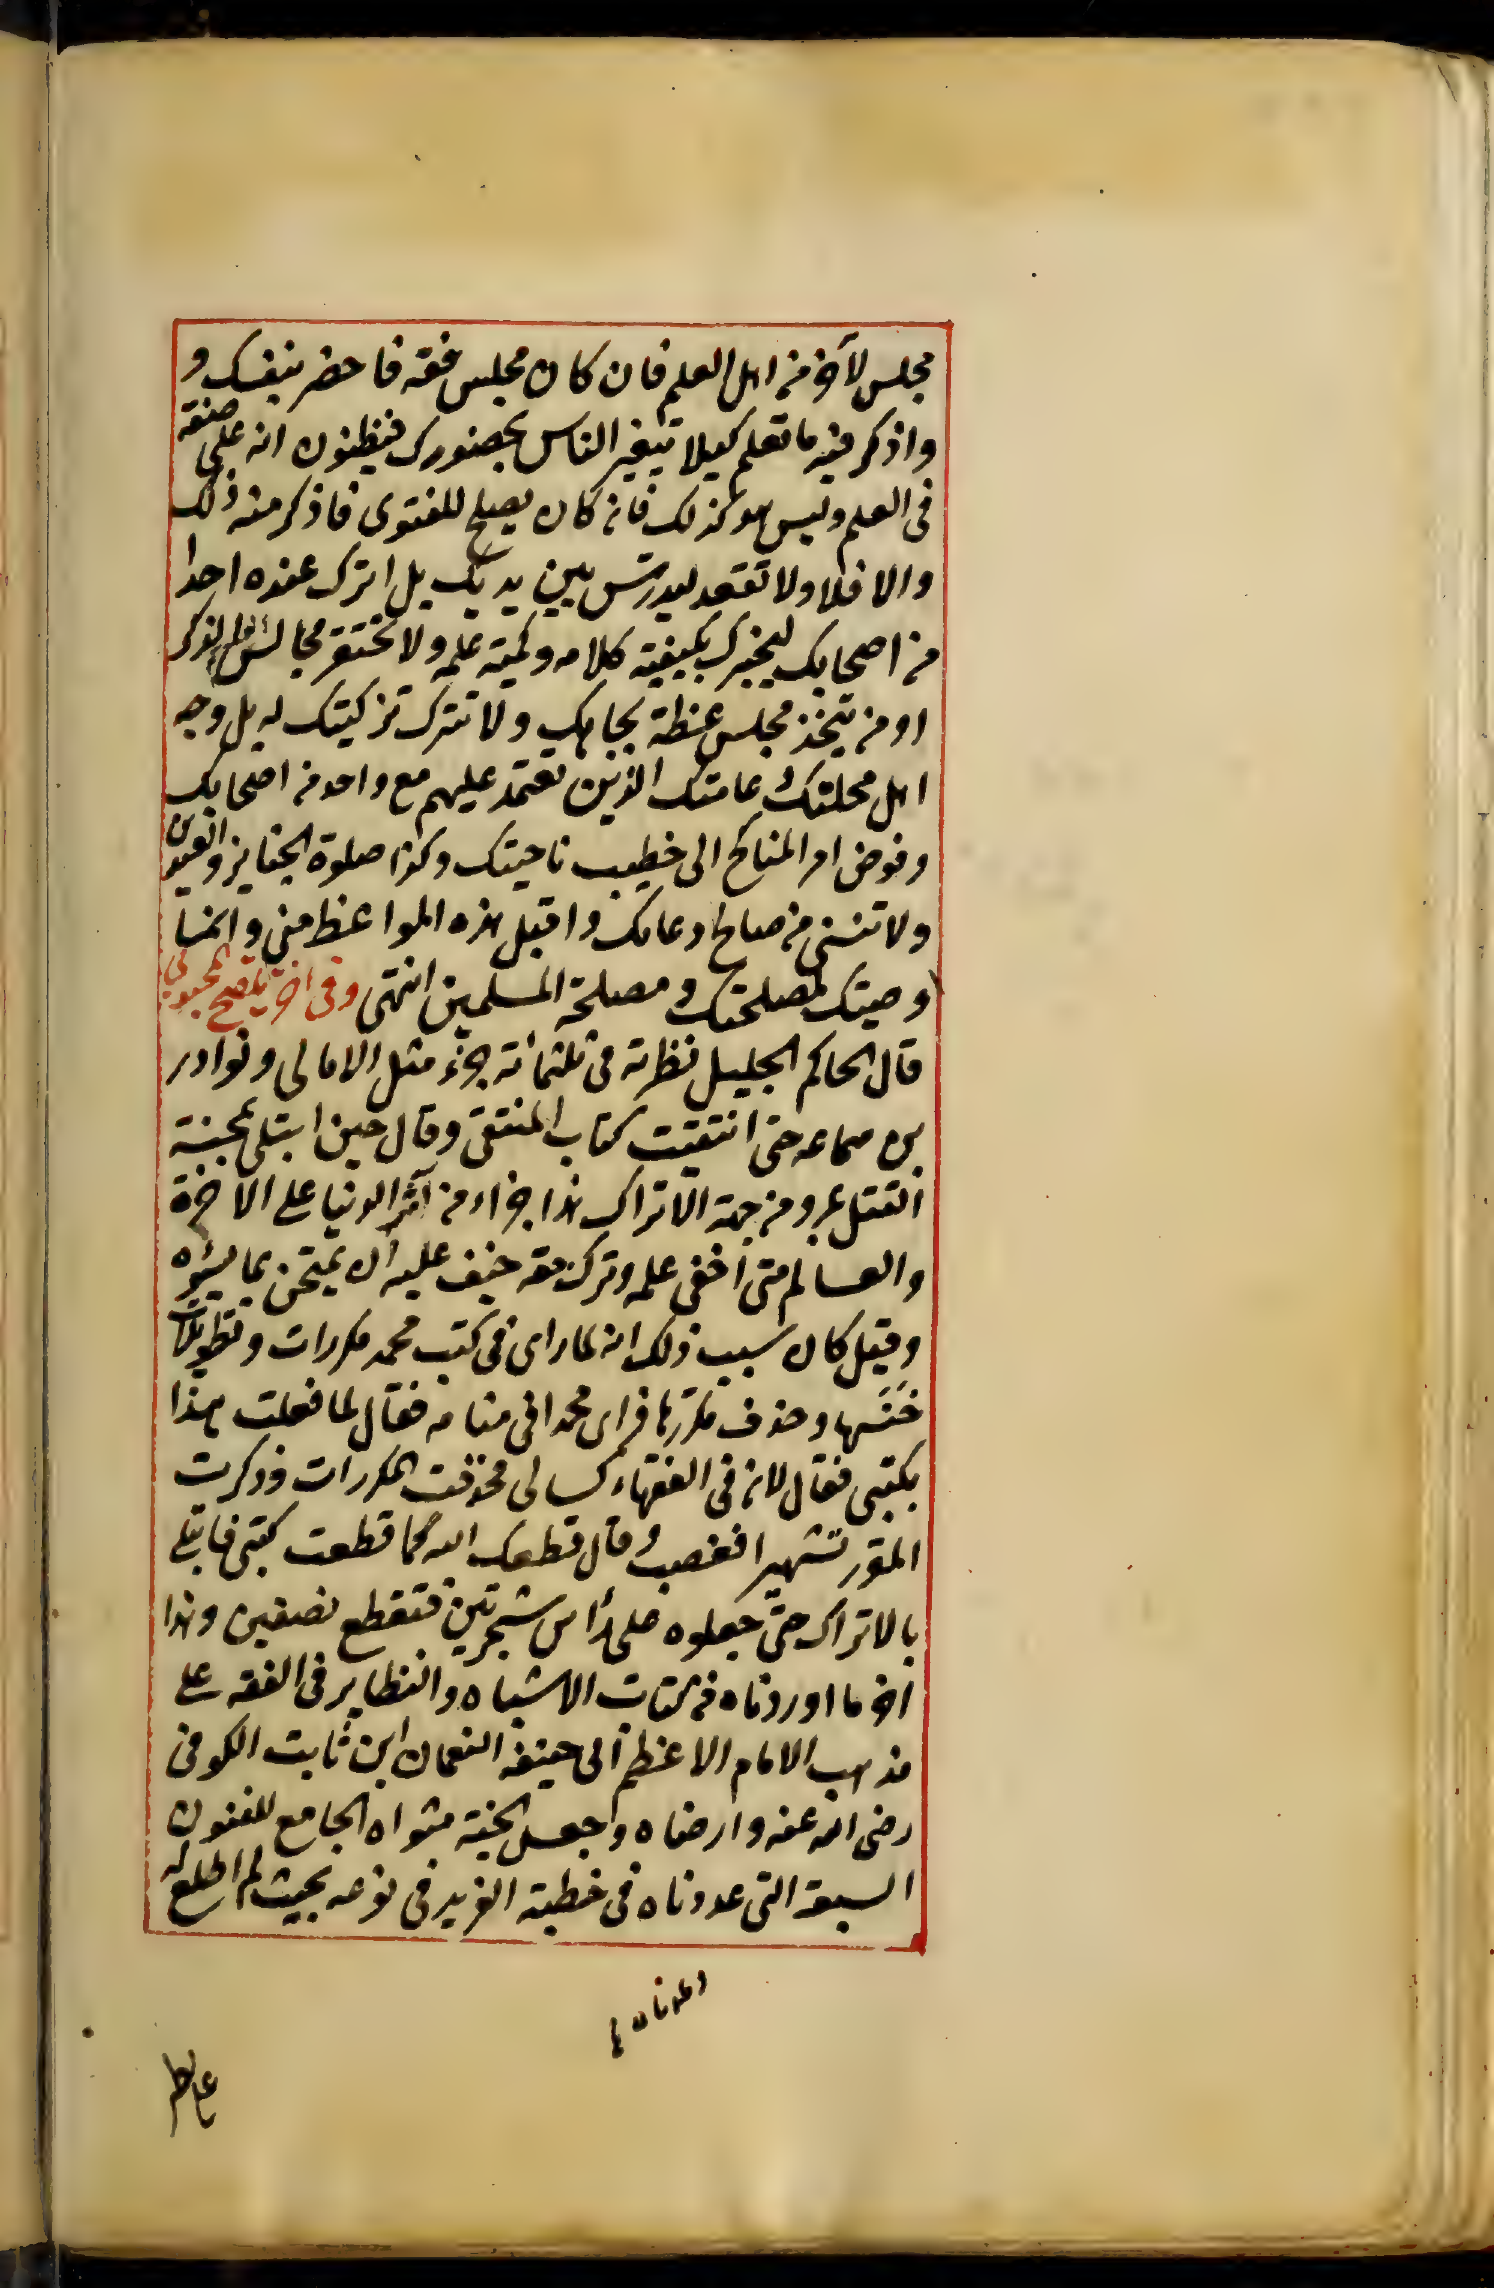 مجلس لآخر من اهل العلم فان كان مجلس فقه فاحضر بنفسك و
واذكر فيه ما تعلم كيلا تيغير الناس بحضورك فيظنون انه على صفة
فى العلم وليس هو كذلك فان كان يصلح للفتوى فاذكر منه ذلك
والا فلا ولا تقعد ليدرس بين يديك بل اترك عنده احدا
من اصحابك ليخبرك بكيفيته كلامه وكمية علمه ولا تحتقر مجالس الذكر
او من يتخذ مجلس عظة بجاهك ولا تترك تزكيتك له بل وجه
اهل محلتك وعامتك الذين تعتمد عليهم مع واحد من اصحابك
وفوض امر المناكح الى خطيب ناحيتك وكذا صلوة الجنايز والعيدين
ولا تنسنى من صالح دعائك واقبل هذه المواعظ منى وانما
وصيتك لمصلحتك ومصلحة المسلمين انتهى وفى اخر تلقيح المحبوبى
قال الحاكم الجليل نظرت فى ثلثمائة جزء مثل الامالى ونوادر
بن سماعه حتى انتقيت كتاب المنتقى وقال حين ابتلى بمحنة
القتل بمرو من جهة الاتراك هذا جزاء من آثر الدنيا على الاخرة
والعالم متى أخفى علمه وترك حقه خيف عليه ان يمتحن بما يسؤه
وقيل كان سبب ذلك انه لما راى فى كتب محمد مكررات وتطويلات
خنسها وحذف مكررها فراى محمدا فى منامه فقال لما فعلت هذا
بكتبى فقال لان فى الفقهاء كسالى فحذفت المكررات وذكرت
المقرر تشهيرا فغضب وقال قطعك الله كما قطعت كتبى فابتلى
بالاتراك حتى جعلوه على رأس شجرتين فتقطع نصفين وهذا
اخر ما اوردناه من كتاب الاشباه والنظاير فى الفقه على
مذهب الامام الاعظم ابى حنيفه النعمان ابن ثابت الكوفى
رضى الله عنه وارضاه وجعل الجنة مثواه الجامع للفنون
السبعة التى عددناه فى خطبته الفريد فى نوعه بحيث لم اطلع له